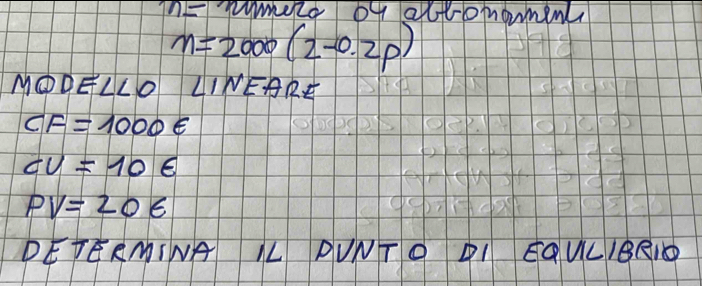 n= numero di abbonamenti
n=2000(2-0.2p)
MODELLO LINEARE
CF=1000€
CU=10€
PV=20€
DETERMINA IL PUNTO DI EQUILIBRIO